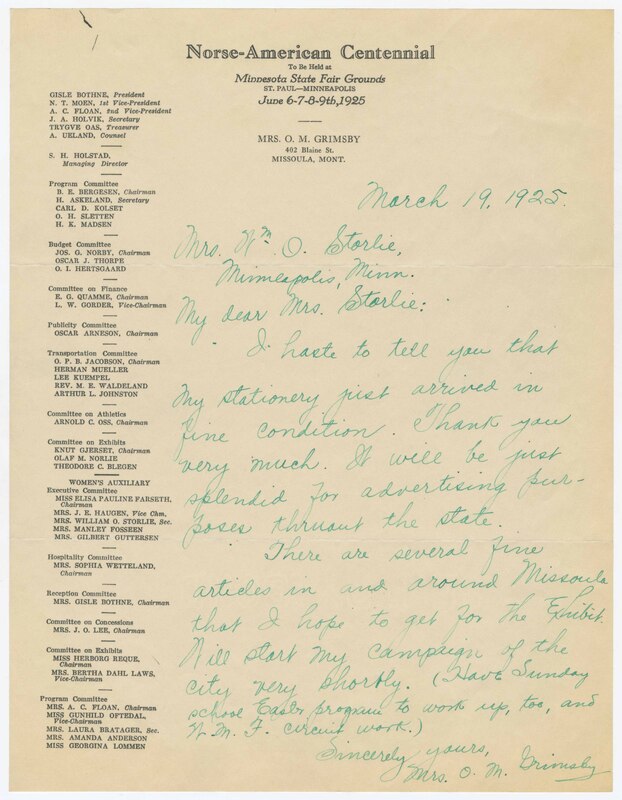 Norse-American Centennial
To Be Held at
Minnesota State Fair Grounds
ST. PAUL—MINNEAPOLIS
June 6-7-8-9th, 1925
MRS. O. M. GRIMSBY
402 Blaine St.
MISSOULA, MONT.
GISLE BOTHNE, President
N. T. MOEN, 1st Vice-President
A. C. FLOAN, 2nd Vice-President
J. A. HOLVIK, Secretary
TRYGVE OAS, Treasurer
A. UELAND, Counsel
S. H. HOLSTAD,
Managing Director
Program Committee
B. E. BERGESEN, Chairman
H. ASKELAND, Secretary
CARL D. KOLSET
O. H. SLETTEN
H. K. MADSEN
Budget Committee
JOS. G. NORBY, Chairman
OSCAR J. THORPE
O. I. HERTSGAARD
Committee on Finance
E. G. QUAMME, Chairman
L. W. GORDER, Vice-Chairman
Publicity Committee
OSCAR ARNESON, Chairman
Transportation Committee
O. P. B. JACOBSON, Chairman
HERMAN MUELLER
LEE KUEMPEL
REV. M. E. WALDELAND
ARTHUR L. JOHNSTON
Committee on Athletics
ARNOLD C. OSS, Chairman
Committee on Exhibits
KNUT GJERSET, Chairman
OLAF M. NORLIE
THEODORE C. BLEGEN
WOMEN'S AUXILIARY
Executive Committee
MISS ELISA PAULINE FARSETH,
Chairman
MRS. J. E. HAUGEN, Vice Chm.
MRS. WILLIAM O. STORLIE, Sec.
MRS. MANLEY FOSSEEN
MRS. GILBERT GUTTERSEN
Hospitality Committee
MRS. SOPHIA WETTELAND,
Chairman
Reception Committee
MRS. GISLE BOTHNE, Chairman
Committee on Concessions
MRS. J. O. LEE, Chairman
Committee on Exhibits
MISS HERBORG REQUE,
Chairman
MRS. BERTHA DAHL LAWS,
Vice-Chairman
Program Committee
MRS. A. C. FLOAN, Chairman
MISS GUNHILD OFTEDAL,
Vice-Chairman
MRS. LAURA BRATAGER, Sec.
MRS. AMANDA ANDERSON
MISS GEORGINA LOMMEN
March 19, 1925.
Mrs. Wm. O. Storlie,
Minneapolis, Minn.
My dear Mrs. Storlie:
I haste to tell you that
my stationery just arrived in
fine condition. Thank you
very much. It will be just
splendid for advertising pur-
poses thruout the state.
There are several fine
articles in and around Missoula
that I hope to get for the Exhibit.
Will start my campaign of the
city very shortly. (Have Sunday
school Easter program to work up, too, and
W. M. F. circuit work.)
Sincerely yours,
Mrs. O. M. Grimsby